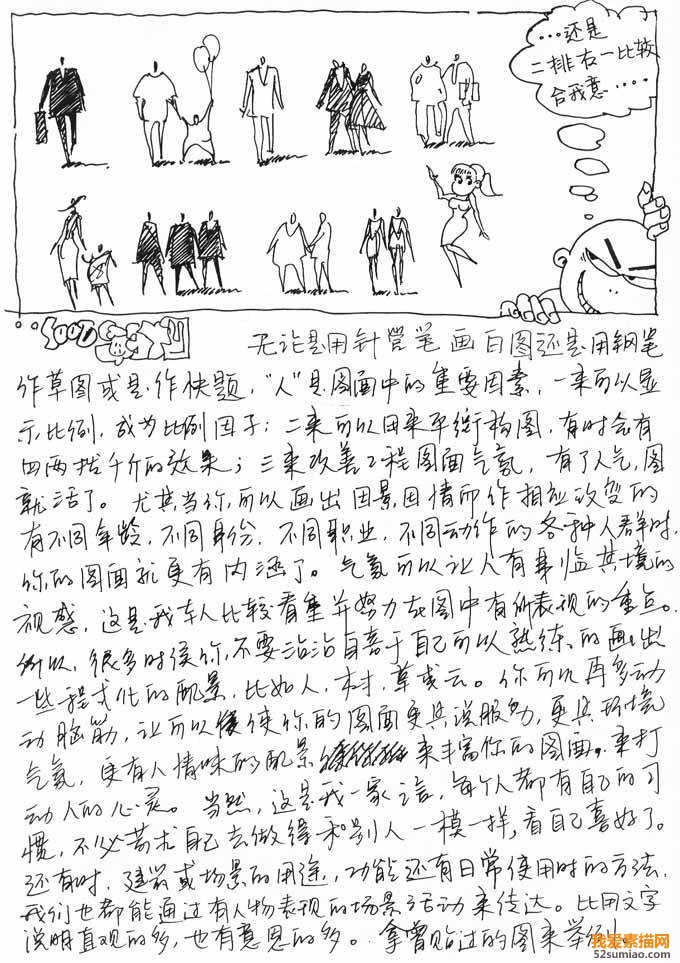 …还是
二排右一比较
合我意……
无论是用针管笔画白图还是用钢笔
作草图或是作快题，"人"是图面中的重要因素，一来可以显
示比例，成为比例因子；二来可以用来平衡构图，有时会有
四两拨千斤的效果；三来改善工程图面气氛，有了人气，图
就活了。尤其当你可以画出因景因情而作相应改变的
有不同年龄，不同身份，不同职业，不同动作的各种人群时，
你的图面就更有内涵了。气氛可以让人有身临其境的
视感，这是我本人比较看重并努力在图中有所表现的重点。
所以，很多时侯你不要沾沾自喜于自己可以熟练的画出
一些程式化的配景，比如人，树，草或云。你可以再多动
动脑筋，让可以使你的图面更具说服力，更具环境
气氛，更有人情味的配景来丰富你的图面。来打
动人的心灵。当然，这是我一家之言，每个人都有自己的习
惯，不必苛求自己去做得和别人一模一样，看自己喜好了。
还有时，建筑或场景的用途，功能还有日常使用时的方法，
我们也都能通过有人物表现的场景活动来传达。比用文字
说明直观的多，也有意思的多。拿曾贴过的图来举例。
我爱素描网
52sumiao.com